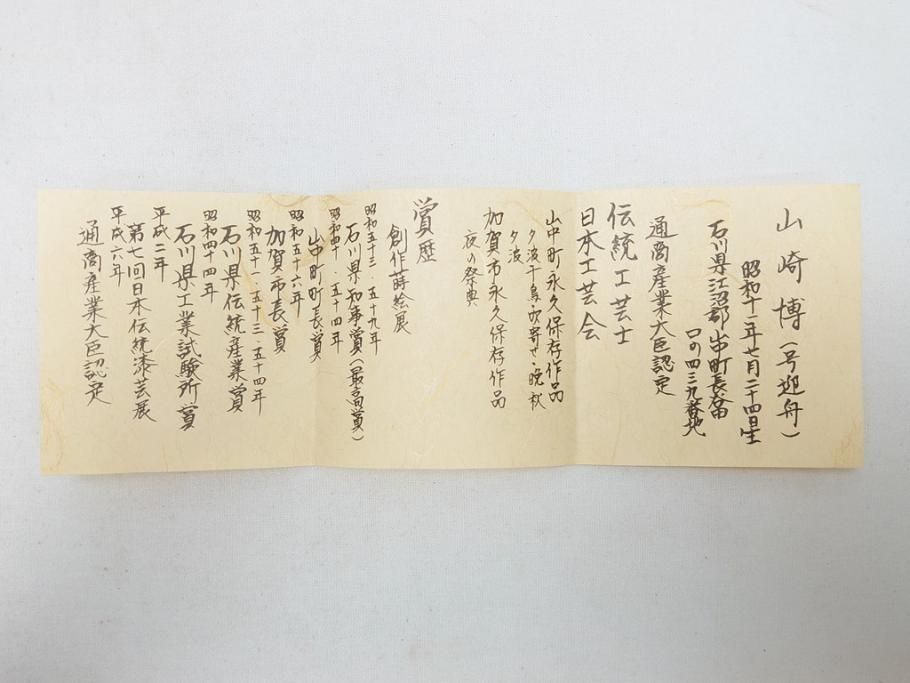 山崎博（号迎舟）
昭和十一年七月二十四日生
石川県江沼郡山中町長谷田
口の四三九番地
通商産業大臣認定
伝統工芸士
日本工芸会
山中町永久保存作品
夕波千鳥・吹寄せ・晩秋
夕波
加賀市永久保存作品
夜の祭典
賞歴
創作蒔絵展
昭和五十三・五十九年
石川県知事賞（最高賞）
昭和四十・五十四年
山中町町長賞
昭和五十六年
加賀市長賞
昭和五十一・五十三・五十四年
石川県伝統産業賞
昭和四十四年
石川県工業試験所賞
平成二年
第七回日本伝統漆芸展
平成六年
通商産業大臣認定